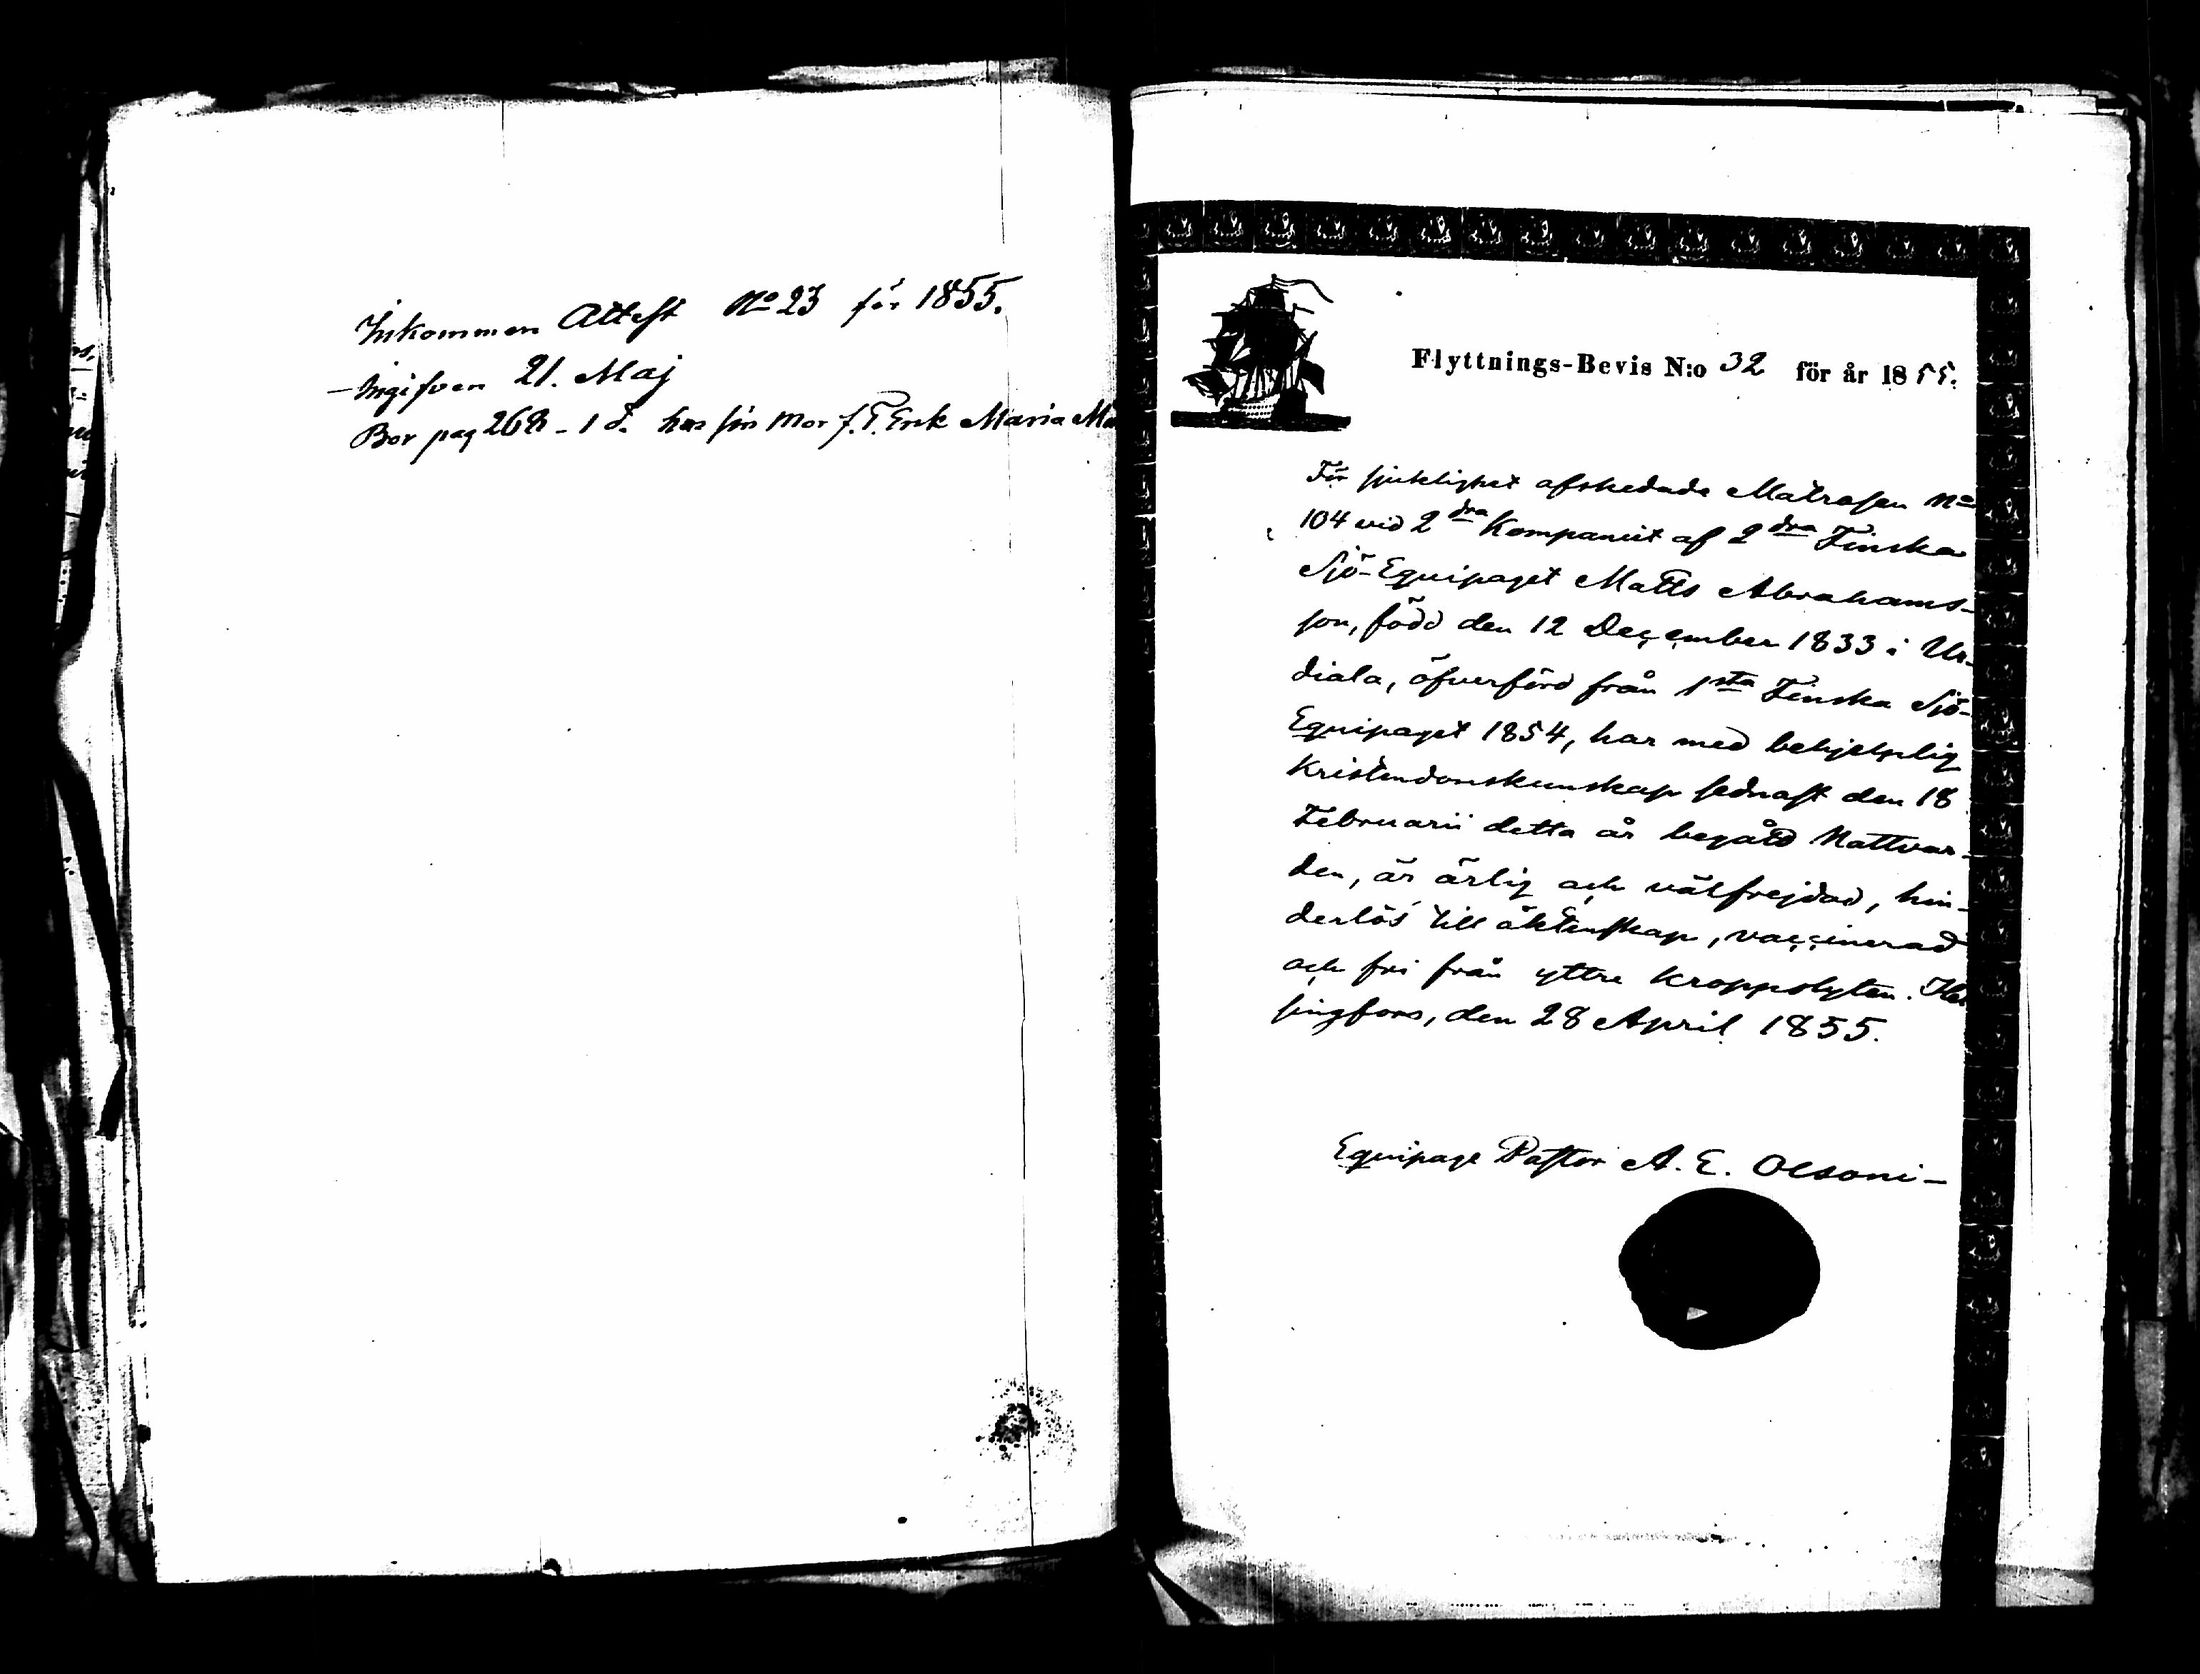 Inkommen Attest No 23 för 1855.
Ingifven 21. Maj
Bor pag 268 - 1 d. hos sin Mor f. T. Erik Maria
Flyttnings-Bevis N:o 32 för år 1855.
För sjuklighet afskedade Matrosen No
104 vid 2dra Kompaniet af 2dra Finska
Sjö-Equipaget Matts Abrahams-
son, född den 12 December 1833 i Ur-
diala, öfverförd från 1sta Finska Sjö-
Equipaget 1854, har med behjelplig
Kristendomskunskap sednast den 18
Februarii detta år begått Nattvar-
den, är ärlig och välfrejdad, hin-
derlös till äktenskap, vaccinerad
och fri från yttre kroppslyten. Hel
singfors, den 28 April 1855.
Equipage Pastor A. E. Olsoni